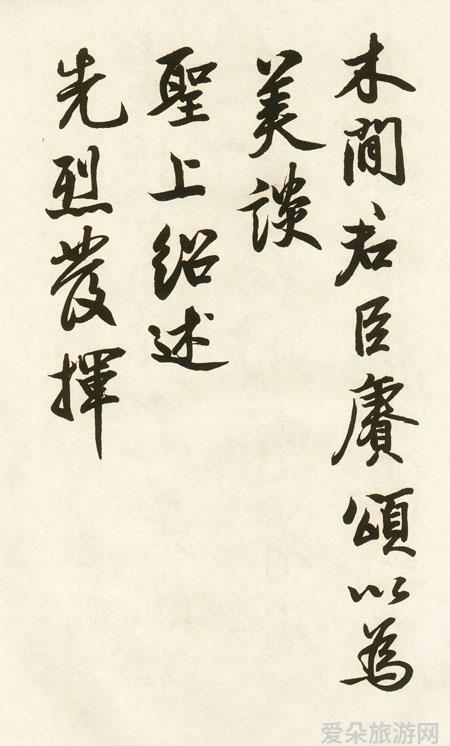 木間君臣賡頌以為
美談
聖上紹述
先烈發揮
爱朵旅游网